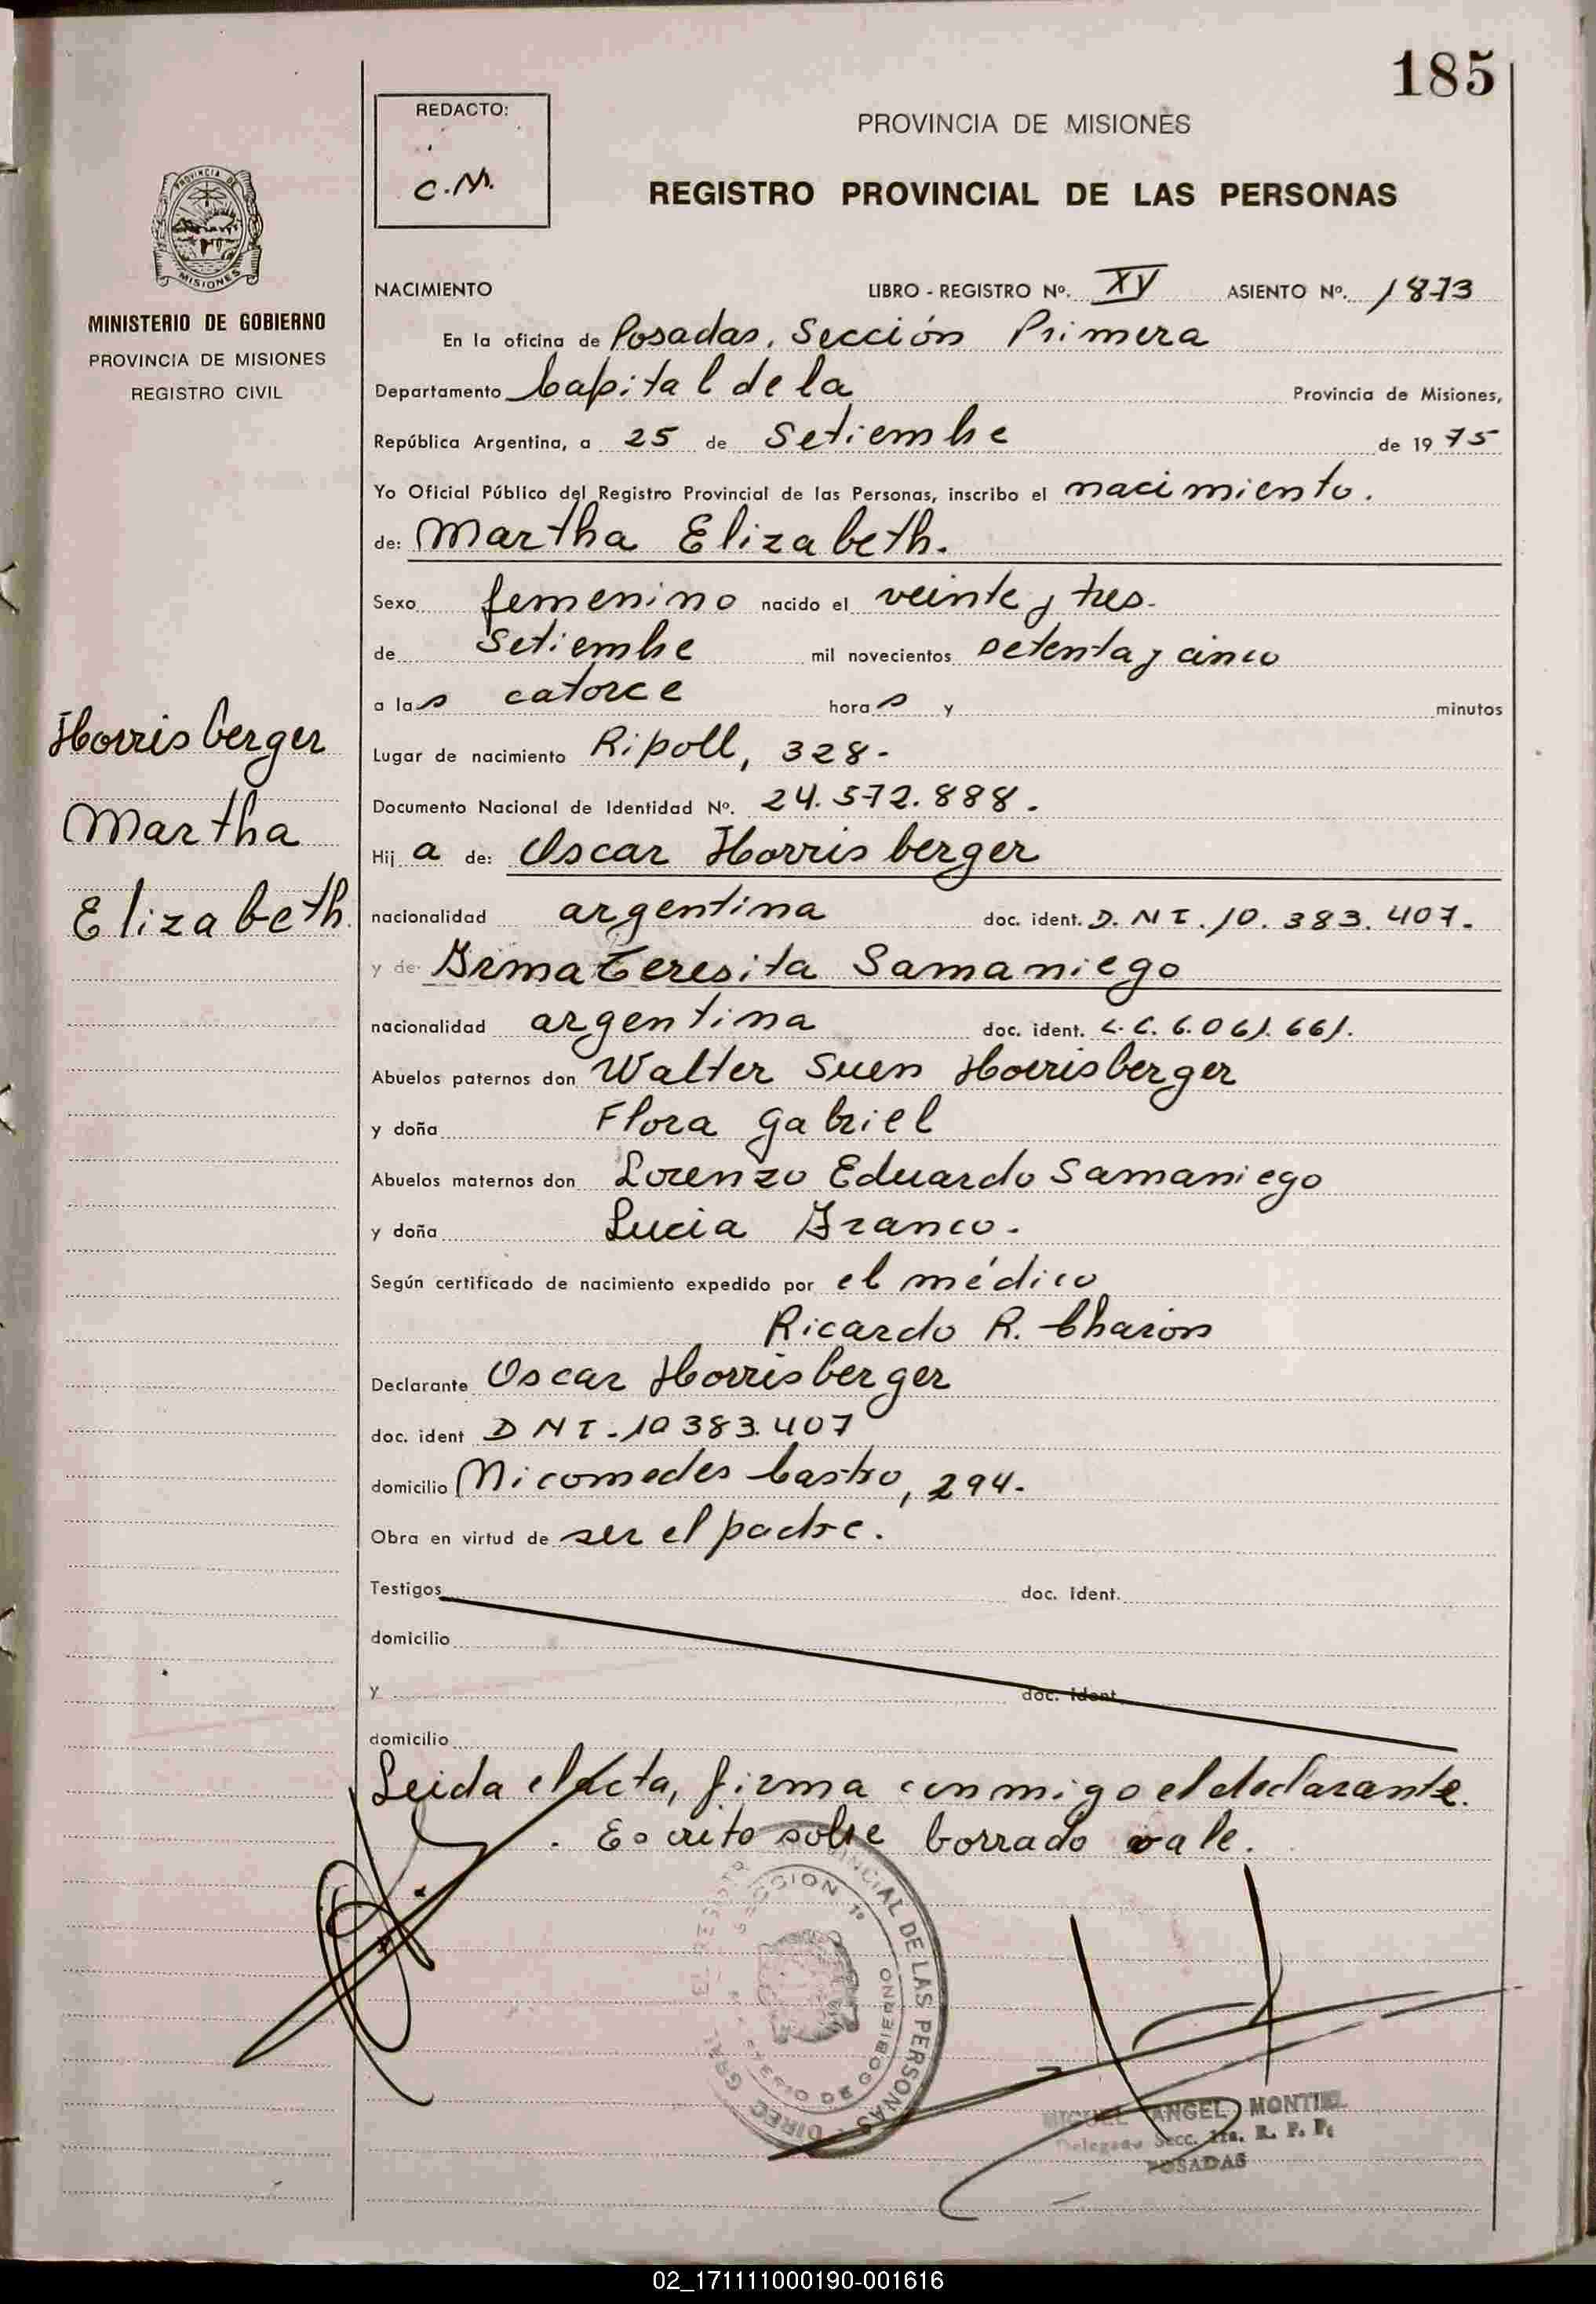 185
REDACTO:
C.M.
PROVINCIA DE MISIONES
REGISTRO PROVINCIAL DE LAS PERSONAS
PROVINCIA DE
MISIONES
MINISTERIO DE GOBIERNO
PROVINCIA DE MISIONES
REGISTRO CIVIL
NACIMIENTO LIBRO - REGISTRO Nº. XV ASIENTO Nº. 1873
En la oficina de Posadas, Sección Primera
Departamento Capital de la Provincia de Misiones,
República Argentina, a 25 de Setiembre de 1975
Yo Oficial Público del Registro Provincial de las Personas, inscribo el nacimiento.
de: Martha Elizabeth.
Sexo femenino nacido el veinte y tres.
de Setiembre mil novecientos setenta y cinco
a las catorce horas y minutos
Lugar de nacimiento Ripoll, 328-
Documento Nacional de Identidad Nº. 24.572.888.
Hija de: Oscar Horrisberger
nacionalidad argentina doc. ident. D.N.I. 10.383.407.
y de Irma Teresita Samaniego
nacionalidad argentina doc. ident. L.C. 6.061.661.
Abuelos paternos don Walter Suen Horrisberger
y doña Flora Gabriel
Abuelos maternos don Lorenzo Eduardo Samaniego
y doña Lucia Franco.
Según certificado de nacimiento expedido por el médico
Ricardo R. Charón
Declarante Oscar Horrisberger
doc. ident D N I. 10383.407
domicilio Nicomedes Castro, 294.
Obra en virtud de ser el padre.
Testigos doc. ident.
domicilio
y doc. ident
domicilio
Leida el acta, firma conmigo el declarante.
Escrito sobre borrado vale.
Horrisberger
Martha
Elizabeth
DIREC. GRAL. PROVINCIAL DE LAS PERSONAS
SECCION 1ª
DE GOBIERNO
MIGUEL ANGEL MONTIEL
Delegado Secc. 1ra. R. P. P.
POSADAS
02_171111000190-001616